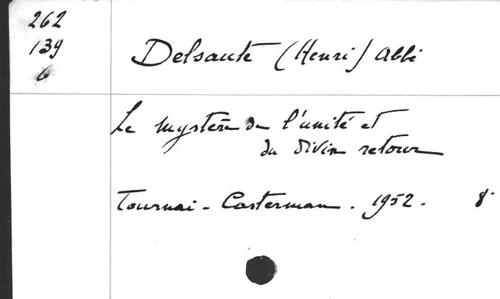 262
139
6
Delsaute (Henri) Abbé
Le mystère de l'unité et
du divin retour
Tournai - Casterman . 1952 . 8°